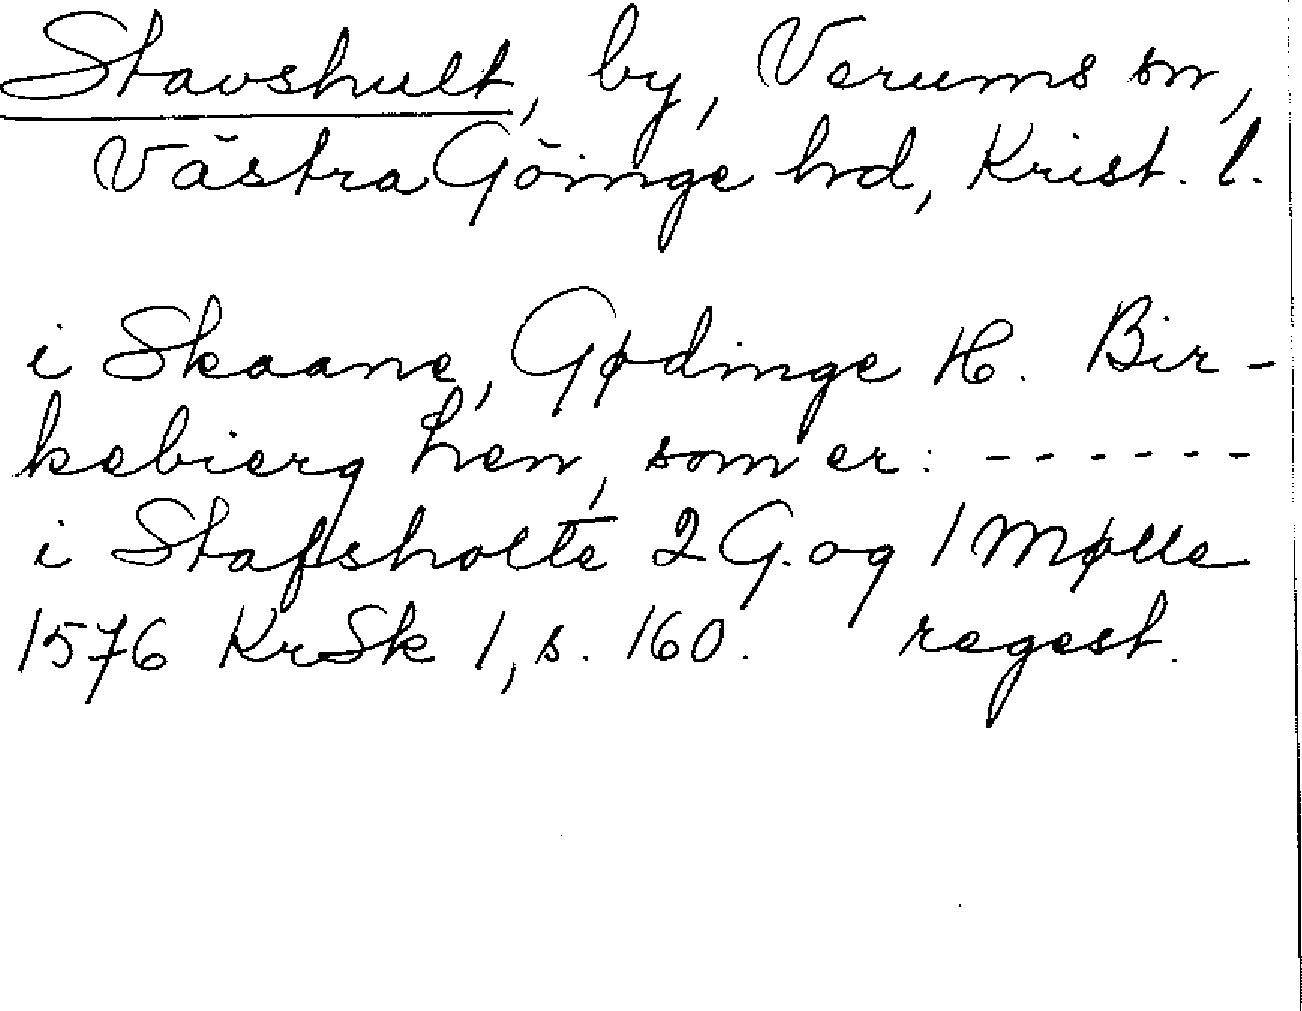 Stavshult, by, Verums sn,
Västra Göinge hrd, Krist. l.
i Skaane, Gødinge H. Bir-
kebierg Len, som er: ------
i Stafsholte 2 G. og 1 Mølle
1576 KrSk 1, s. 160. regest.